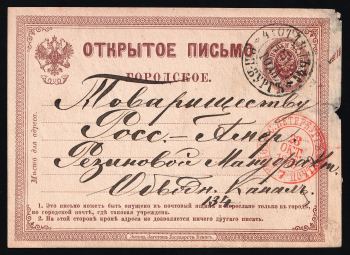 ОТКРЫТОЕ ПИСЬМО
ГОРОДСКОЕ.
Товариществу
Росс.-Амер.
Резиновой Мануфакт.
Обводн. Каналъ
134.
Мѣсто для адреса.
1. Это письмо можетъ быть опущено въ почтовый ящикъ и отправлено только въ городѣ,
по городской почтѣ, гдѣ таковая учреждена.
2. На этой сторонѣ кромѣ адреса не дозволяется ничего другаго писать.